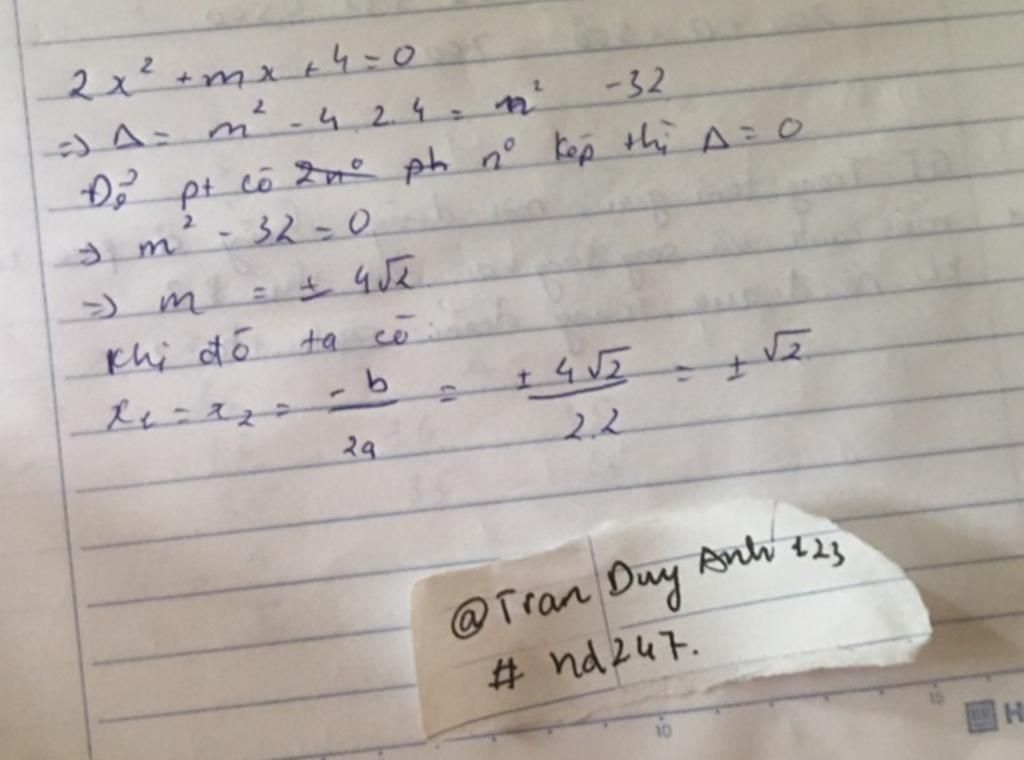 2x² + mx + 4 = 0
=> Δ = m² - 4.2.4 = m² - 32
Để pt có 2n⁰ ph n⁰ kép thì Δ = 0
=> m² - 32 = 0
=> m = ± 4√2
Khi đó ta có:
x₁ = x₂ = -b/2a = ± 4√2/2.2 = ± √2
@Tran Duy Anh 123
# nd247.
10
15